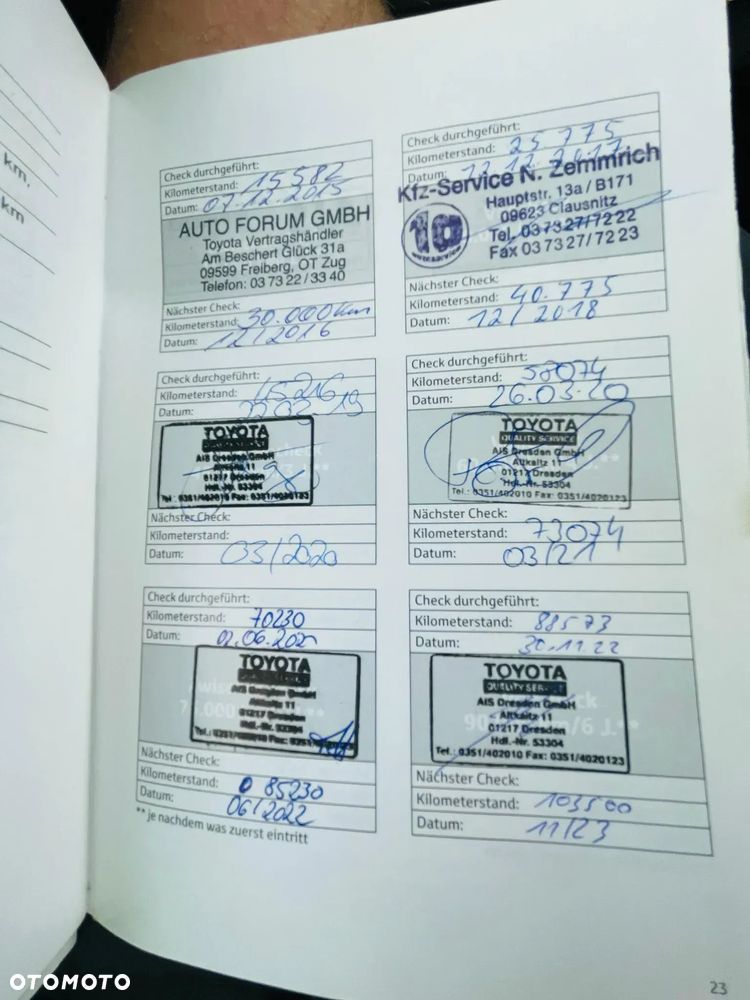 km.
km
Check durchgeführt:
Kilometerstand: 15 582
Datum: 07.12.2015
AUTO FORUM GMBH
Toyota Vertragshändler
Am Beschert Glück 31a
09599 Freiberg, OT Zug
Telefon: 03 73 22 / 33 40
Nächster Check:
Kilometerstand: 30.000 km
Datum: 12/2016
Check durchgeführt:
Kilometerstand: 25 775
Datum: 12.12.2017
Kfz-Service N. Zemmrich
Hauptstr. 13a / B171
09623 Clausnitz
Tel. 03 73 27/ 72 22
Fax 03 73 27/ 72 23
10
Nächster Check:
Kilometerstand: 40.775
Datum: 12/2018
Check durchgeführt:
Kilometerstand: 45216
Datum: 22.03.19
TOYOTA
AIS Dresden GmbH
Altkaitz 11
01217 Dresden
Hdl.-Nr. 53304
Tel.: 0351/402010 Fax: 0351/4020123
Nächster Check:
Kilometerstand:
Datum: 03/2020
Check durchgeführt:
Kilometerstand: 58074
Datum: 26.03.20
TOYOTA
QUALITY SERVICE
AIS Dresden GmbH
Altkaitz 11
01217 Dresden
Hdl.-Nr. 53304
Tel.: 0351/402010 Fax: 0351/4020123
Nächster Check:
Kilometerstand: 73074
Datum: 03/21
Check durchgeführt:
Kilometerstand: 70230
Datum: 02.06.2021
TOYOTA
AIS Dresden GmbH
Altkaitz 11
01217 Dresden
Hdl.-Nr. 53304
Tel.: 0351/402010 Fax: 0351/4020123
Nächster Check:
Kilometerstand: 85230
Datum: 06/2022
Check durchgeführt:
Kilometerstand: 88573
Datum: 30.11.22
TOYOTA
QUALITY SERVICE
AIS Dresden GmbH
Altkaitz 11
01217 Dresden
Hdl.-Nr. 53304
Tel.: 0351/402010 Fax: 0351/4020123
Nächster Check:
Kilometerstand: 103500
Datum: 11/23
** je nachdem was zuerst eintritt
23
OTOMOTO